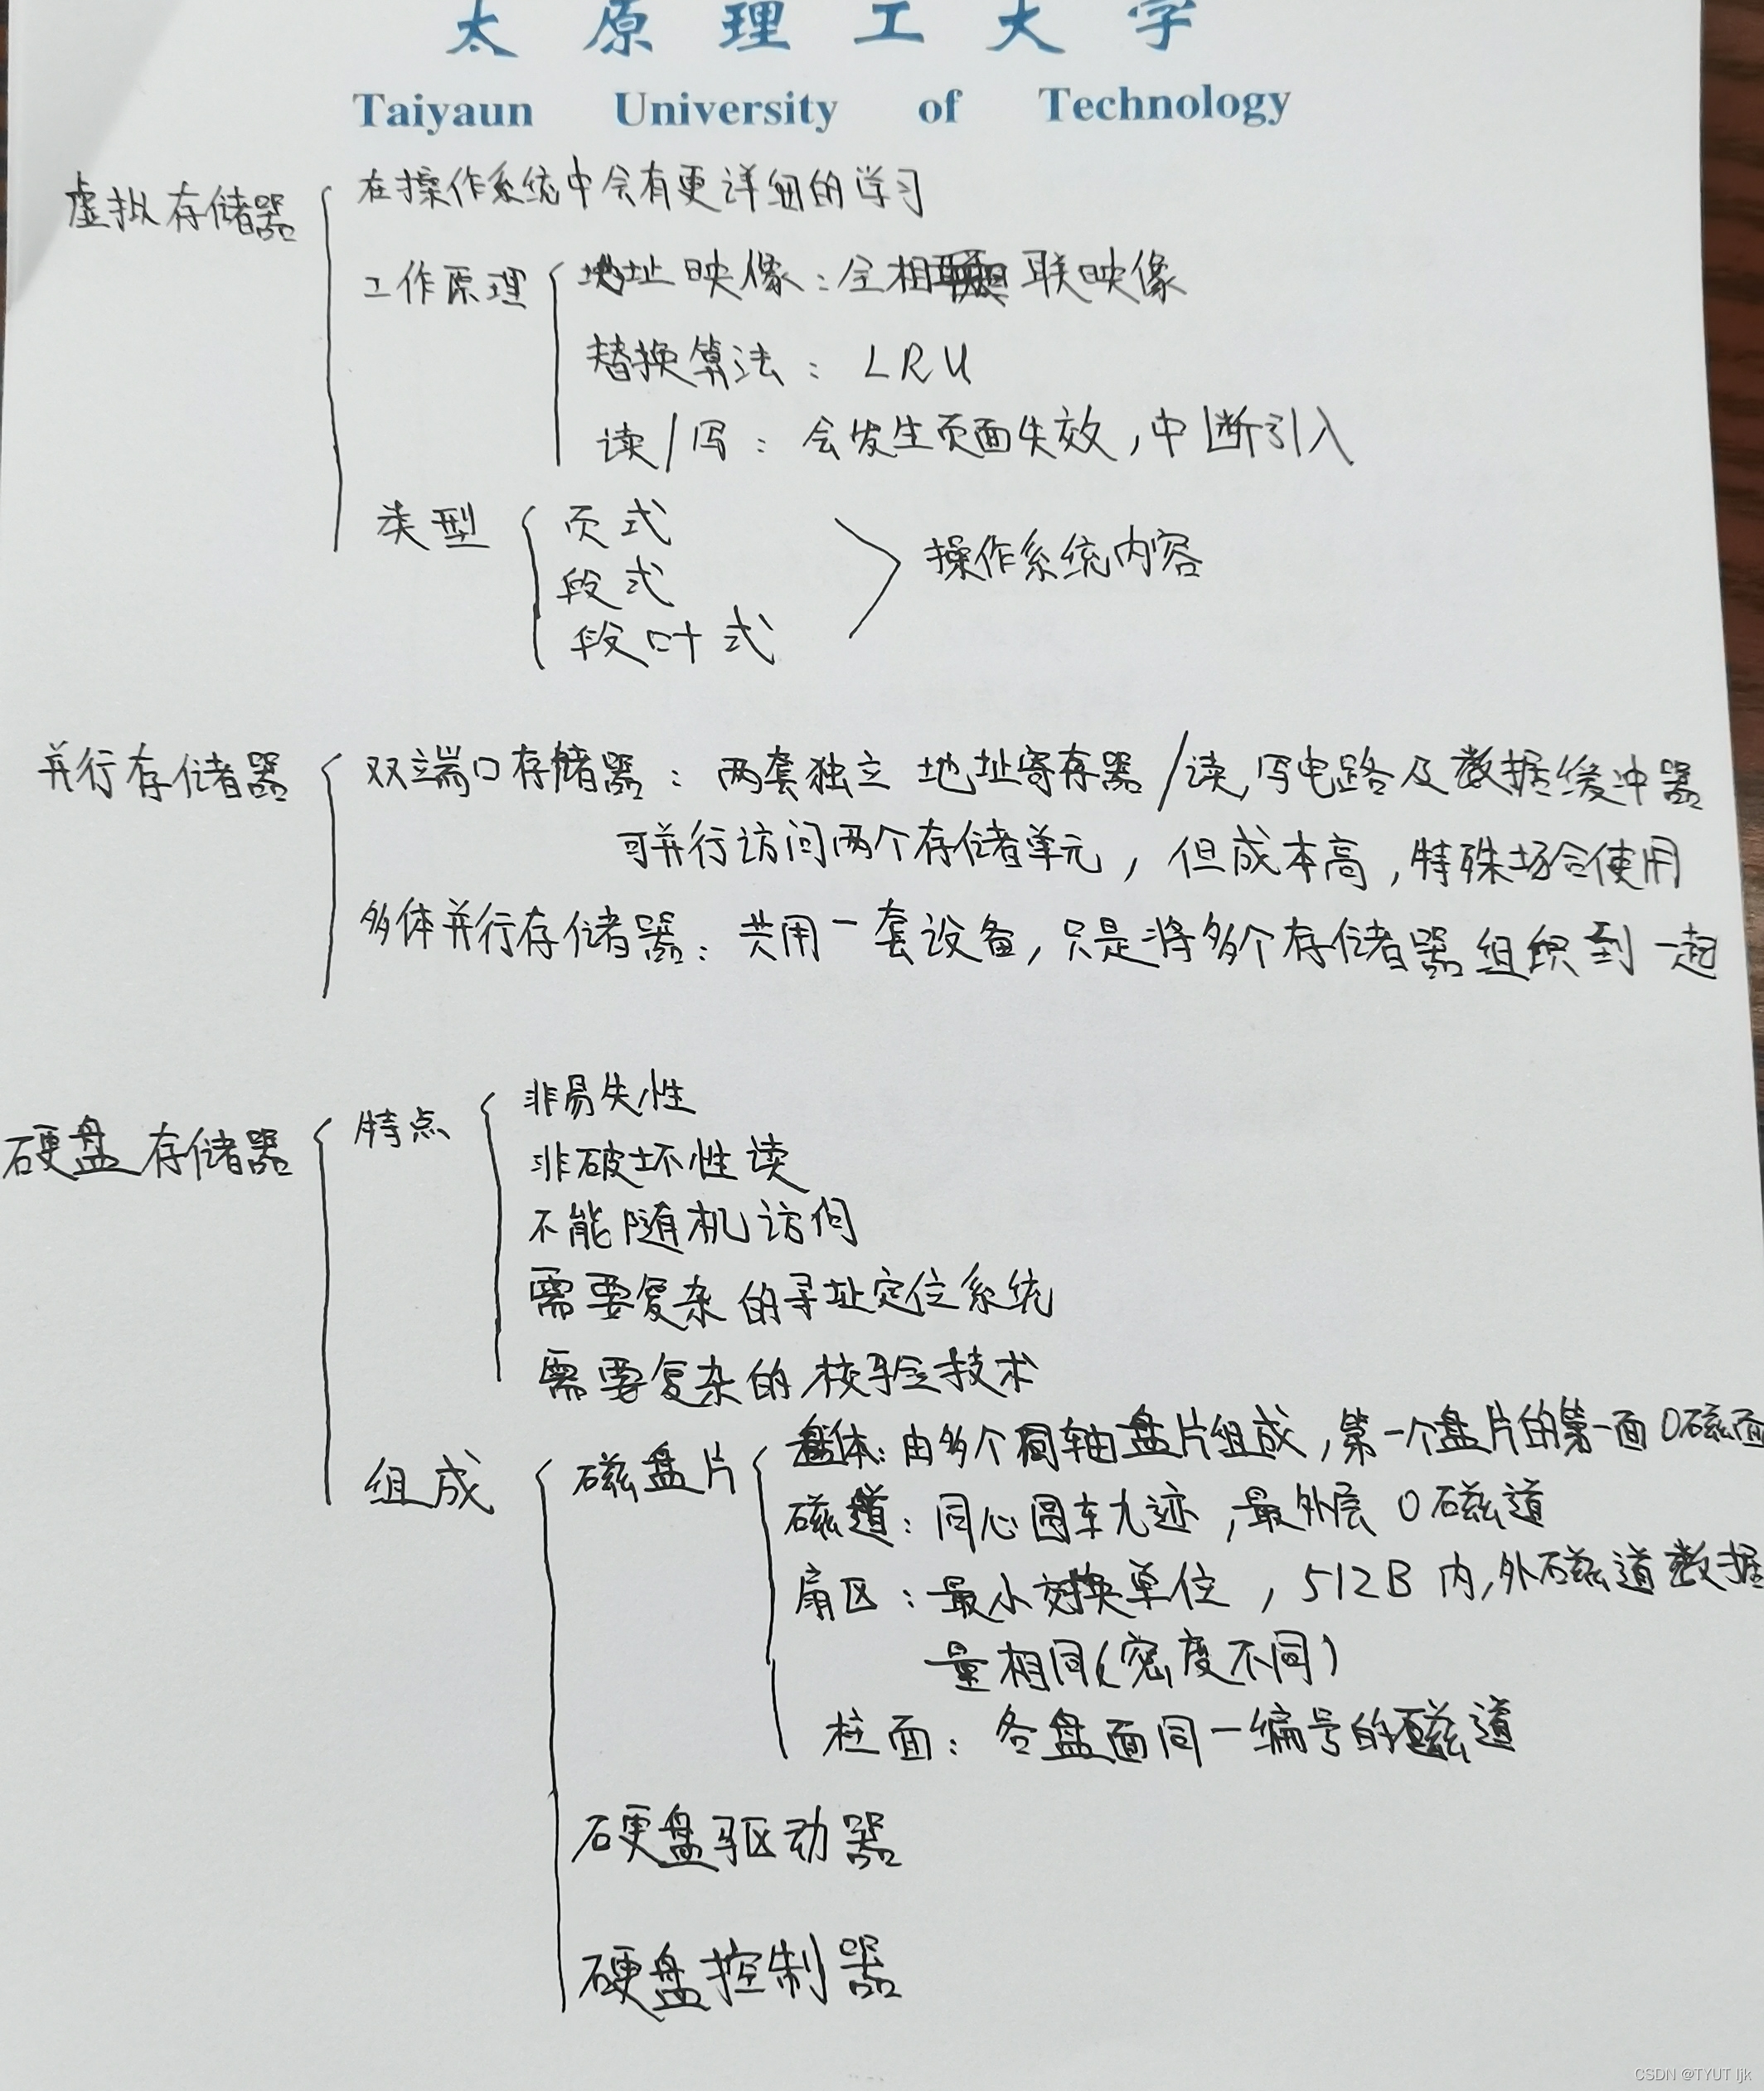 太原理工大学
Taiyaun University of Technology
虚拟存储器
在操作系统中会有更详细的学习
工作原理
地址映像：全相联映像
替换算法：LRU
读/写：会发生页面失效，中断引入
类型
页式
段式
段叶式
操作系统内容
并行存储器
双端口存储器：两套独立 地址寄存器/读,写电路及数据缓冲器
可并行访问两个存储单元，但成本高，特殊场合使用
多体并行存储器：共用一套设备，只是将多个存储器组织到一起
硬盘存储器
特点
非易失性
非破坏性读
不能随机访问
需要复杂的寻址定位系统
需要复杂的校验技术
组成
磁盘片
盘体：由多个同轴盘片组成，第一个盘片的第一面0磁面
磁道：同心圆轨迹，最外层0磁道
扇区：最小交换单位，512B 内,外磁道数据
量相同(密度不同)
柱面：各盘面同一编号的磁道
硬盘驱动器
硬盘控制器
CSDN @TYUT ljk